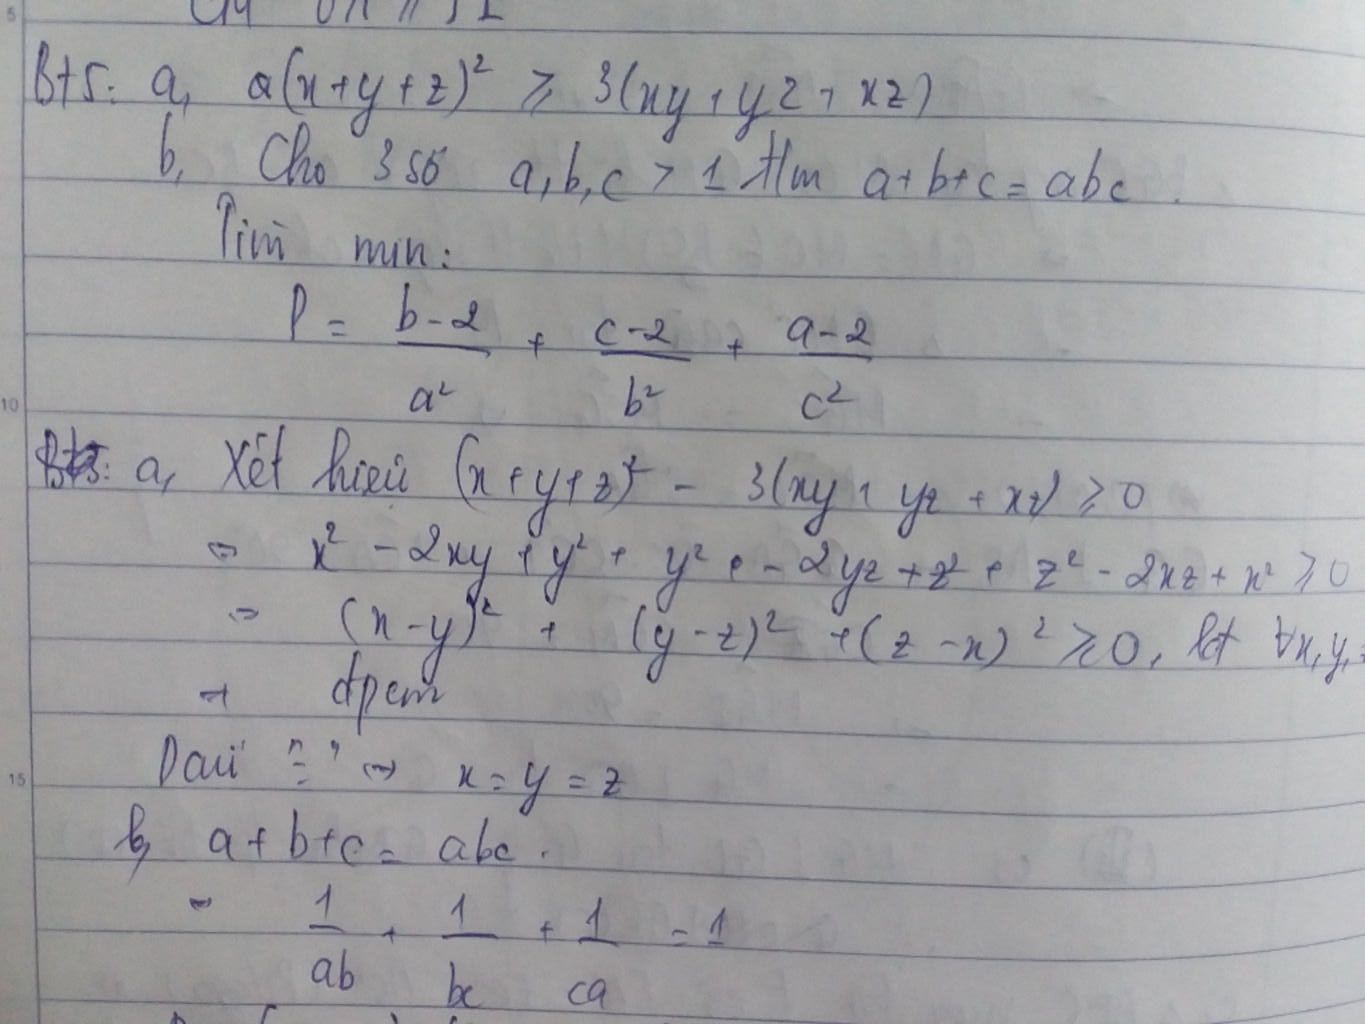 Bt5: a, a(x+y+z)² ⩾ 3(xy+yz+xz)
b, Cho 3 số a,b,c > 1 t/m a+b+c = abc.
Tìm min:
P = b-2/a² + c-2/b² + a-2/c²
10
Bt5: a, Xét hiệu (x+y+z)² - 3(xy+yz+xz) ⩾ 0
⇔ x² - 2xy + y² + y² - 2yz + z² + z² - 2xz + x² ⩾ 0
⇔ (x-y)² + (y-z)² + (z-x)² ⩾ 0, lđ ∀x,y,
→ đpcm
Dấu "=" ⇔ x = y = z
15
b, a+b+c = abc.
⇔ 1/ab + 1/bc + 1/ca = 1